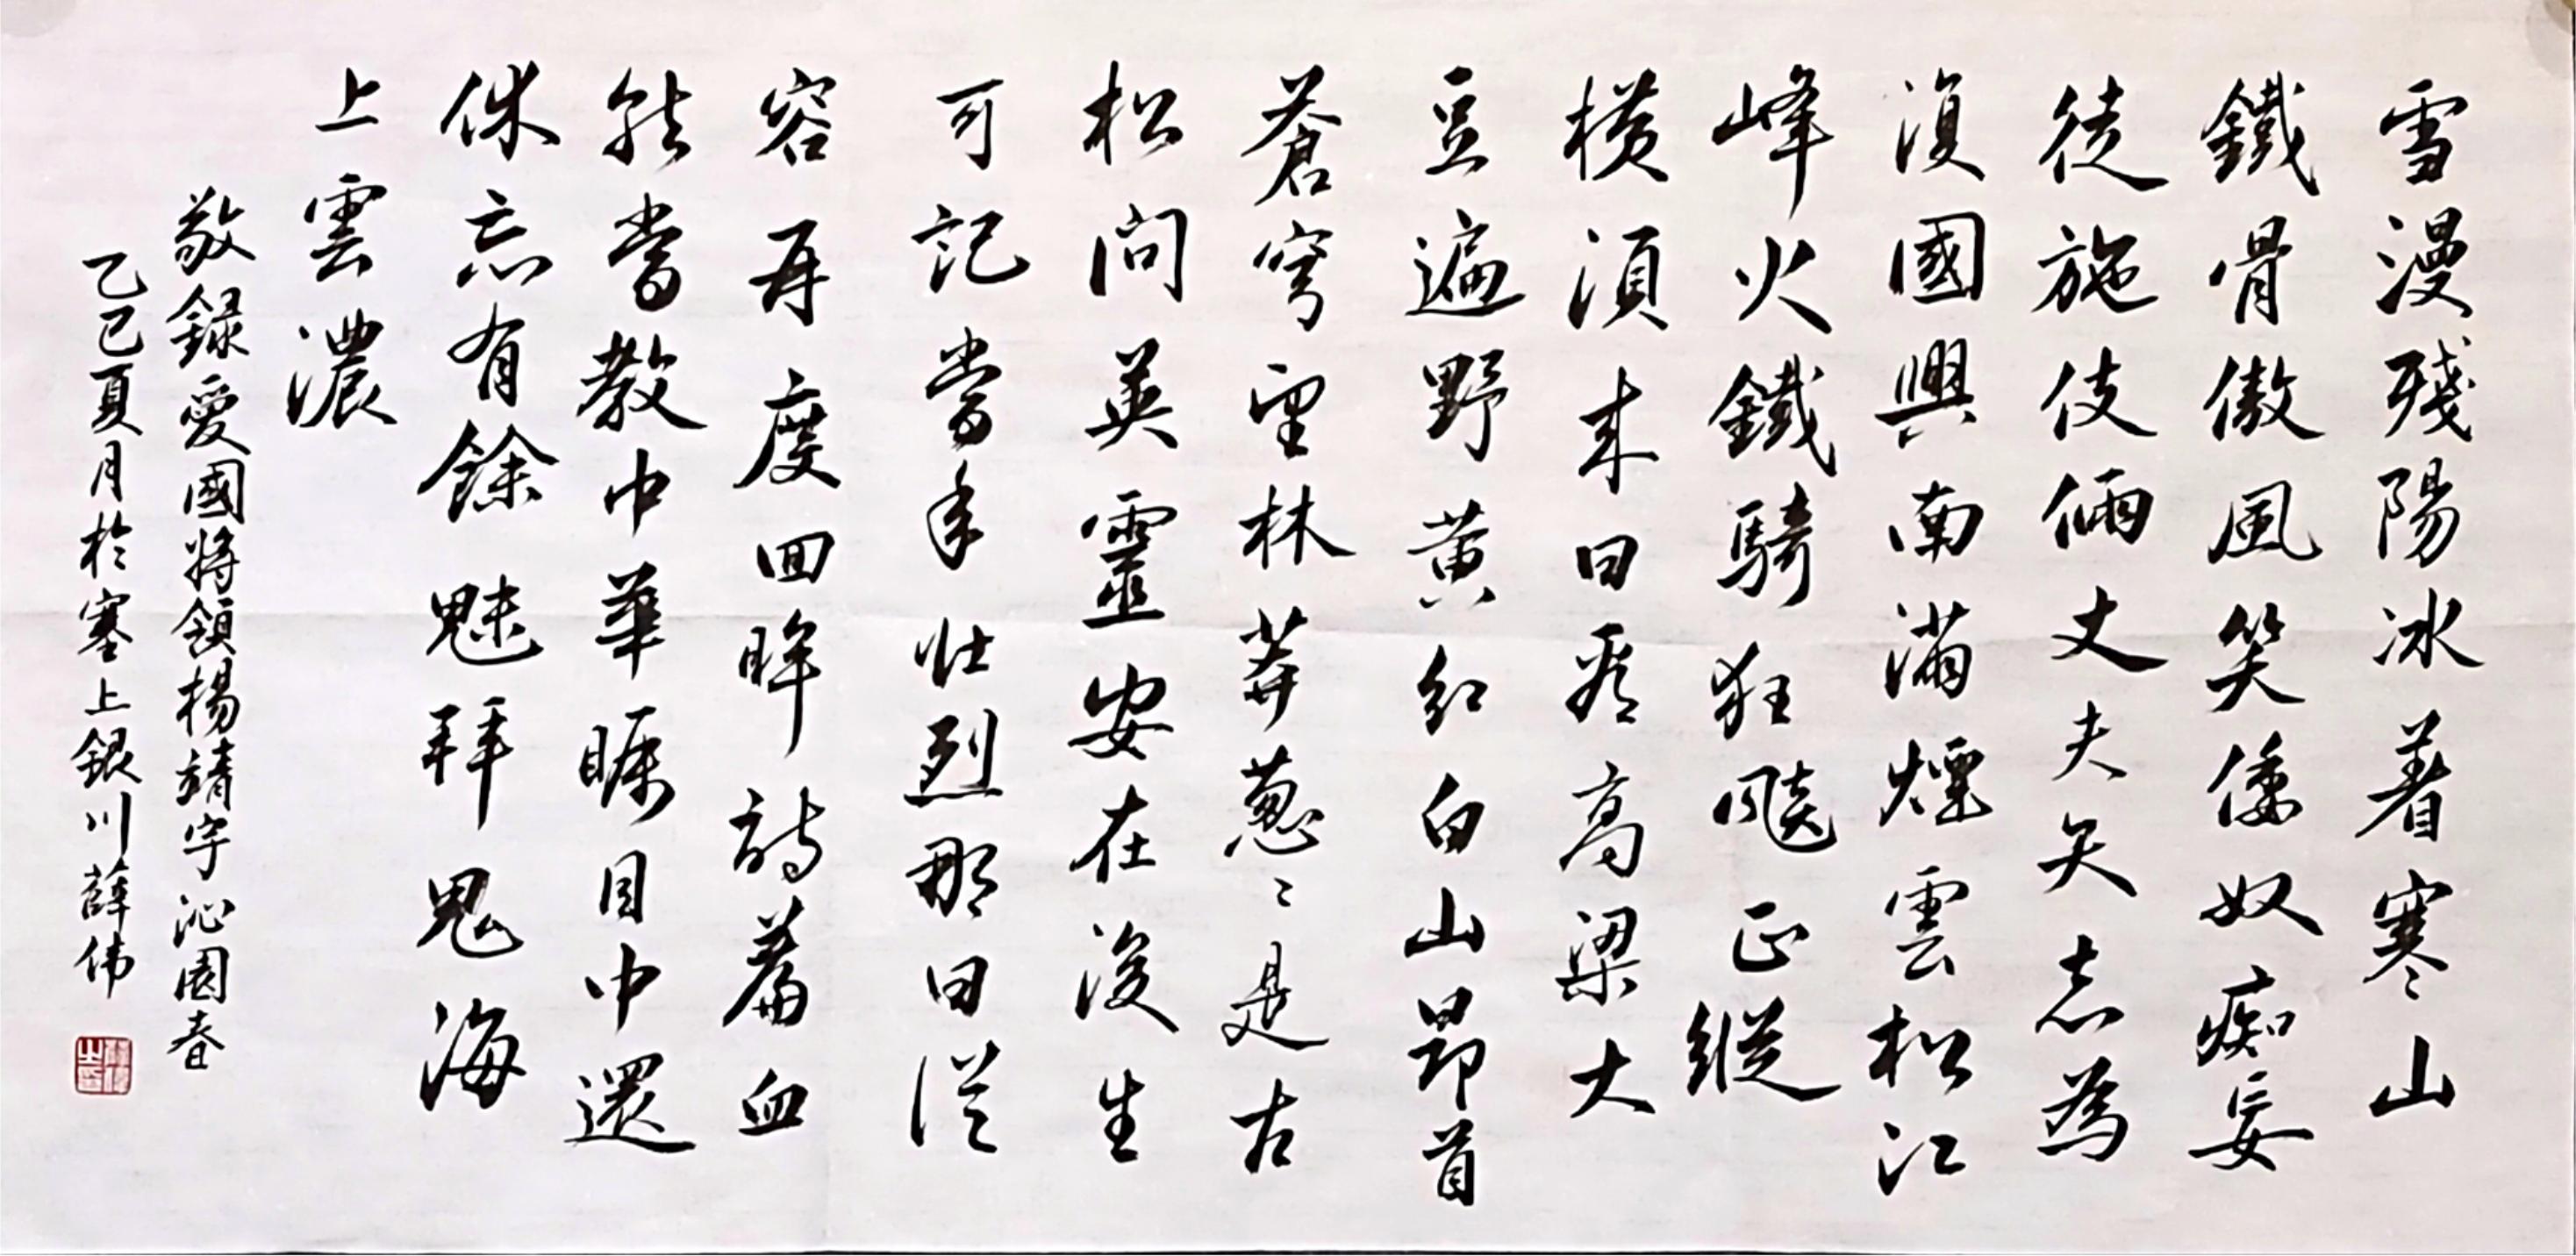 雪漫殘陽冰著寒山
鐵骨傲風笑倭奴痴妄
徒施伎倆丈夫矢志為
復國興南滿煙雲松江
峰火鐵騎狂飈正縱
橫須來日看高粱大
豆遍野黃紅白山昂首
蒼穹望林莽蔥〻是古
松問英靈安在後生
可記當年壯烈那日從
容再度回眸詩篇血
能當教中華矚目中還
休忘有餘魅拜鬼海
上雲濃
敬録愛國將領楊靖宇沁園春
乙巳夏月於塞上銀川薛伟